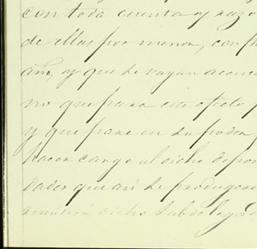 con toda cuenta y razo
de ellas por menor, con
año, y que se vayan
no que para este efecto
y que pase en su poder
hacen cargo al dicho depo
dades que asi se produgese
dicho